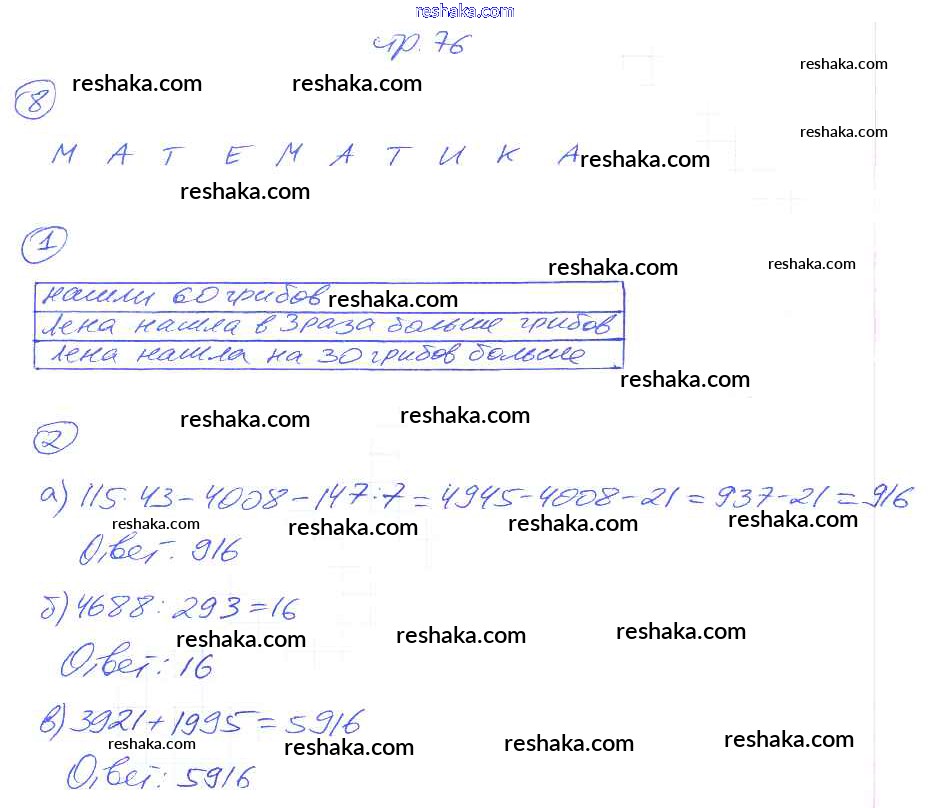 reshaka.com
стр. 76
reshaka.com reshaka.com reshaka.com
8
reshaka.com
М А Т Е М А Т И К А reshaka.com
reshaka.com
1
reshaka.com reshaka.com
нашли 60 грибов reshaka.com
Лена нашла в 3 раза больше грибов
Лена нашла на 30 грибов больше
reshaka.com
reshaka.com reshaka.com
2
а) 115·43-4008-147:7=4945-4008-21=937-21=916
reshaka.com reshaka.com reshaka.com reshaka.com
Ответ: 916
б) 4688:293=16
reshaka.com reshaka.com reshaka.com
Ответ: 16
в) 3921+1995=5916
reshaka.com reshaka.com reshaka.com reshaka.com
Ответ: 5916